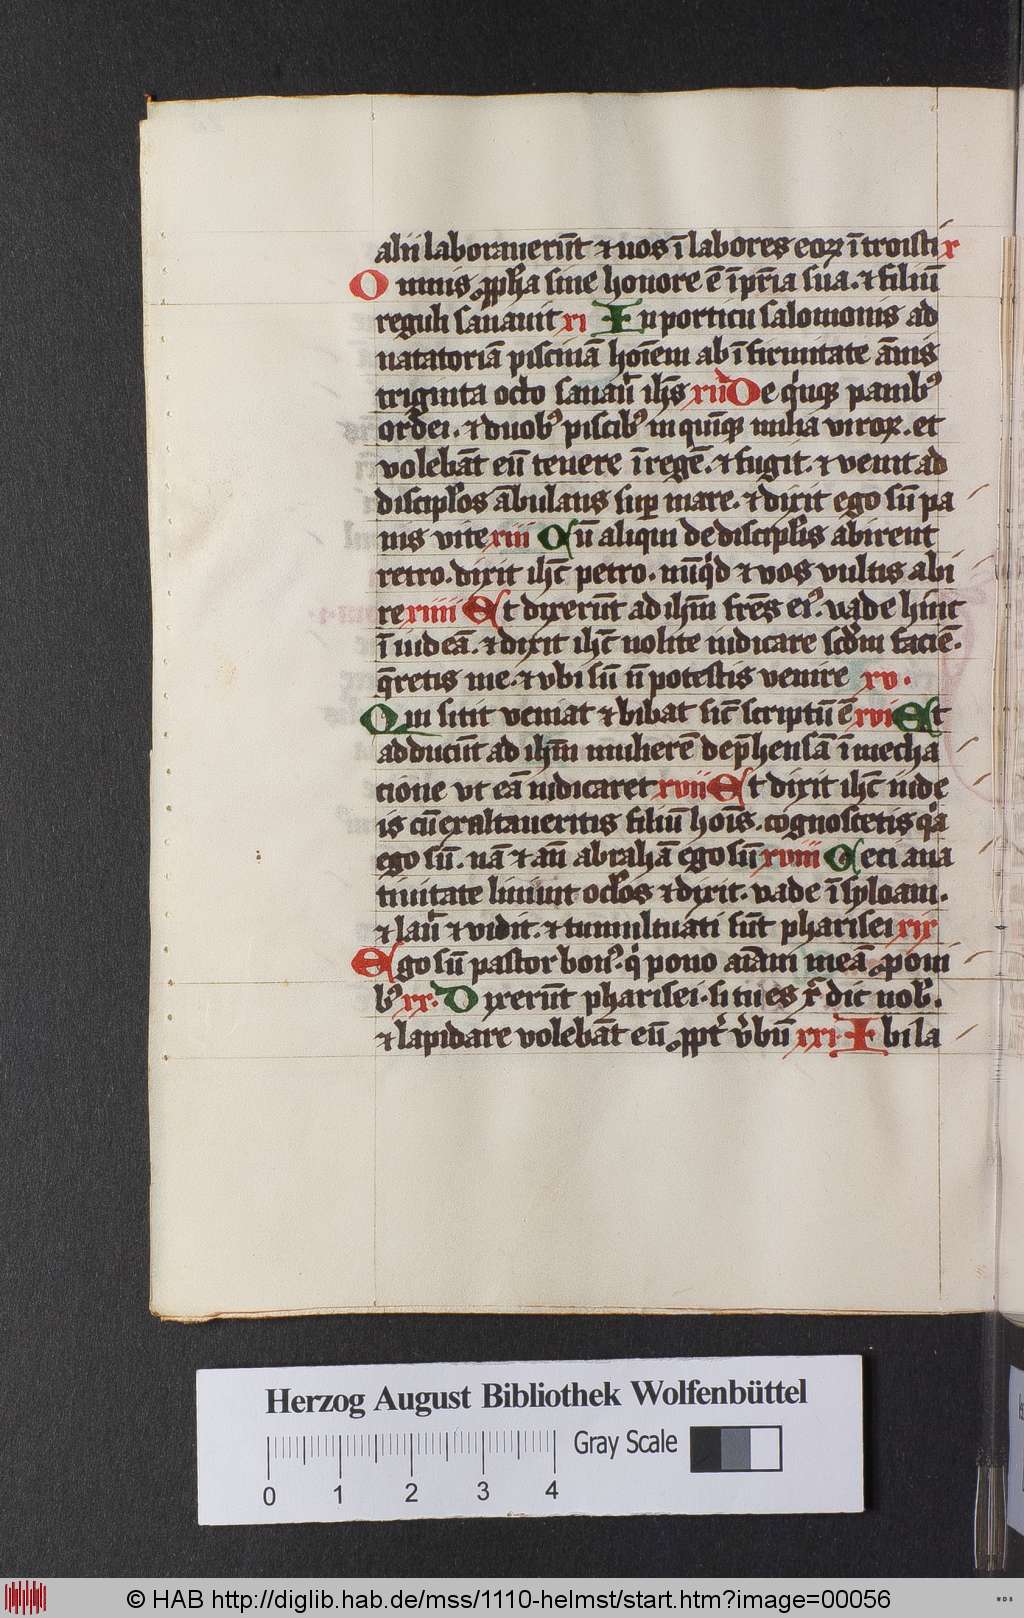 alii laborauerūt ⁊ uos ī labores eoꝝ ītroisti x
Omnis ꝓph̄a sine honore ē īpr̄ia sua. ⁊ filiū
reguli sanauit xi In porticu salomonis ad
natatoriā pisciniā hoīem ab īfirmitate ānis
triginta octo sanauͥ ih̄s xii De qͥnqꝫ panibꝰ
ordei. ⁊ duobꝰ piscibꝰ in quīqꝫ milia viroꝝ. et
volebāt eū tenere īregē. ⁊ fugit. ⁊ venit ad
discipl̄os ābulans suꝑ mare. ⁊ dixit ego sū pa
nis vite xiii Cū aliqui de discipl̄is abirent
retro. dixit ih̄c petro. nūqͥd ⁊ vos vultis abi
re xiiii Et dixerūt ad ih̄m fr̄es eiꝰ. vade hinc
ī iudeā. ⁊ dixit ih̄c nolite iudicare scd̄m faciē.
q̄retis me. ⁊ vbi sū n̄ potestis venire xv.
Qui sitit veniat ⁊ bibat sic̄ scriptū ē xvi Et
adducūt ad ih̄m mulierē dep̄hensā ī mecha
cione vt eā iudicaret xvii Et dixit ih̄c iude
is cū exaltaueritis filiū hoīs. cognoscetis qͥa
ego sū. nā ⁊ an̄ abrahā ego sū xviii Ceci a na
tiuitate liniuit ocl̄os ⁊ dixit. vade ī syloam.
⁊ lauͥ ⁊ vidit. ⁊ tumultuati sūt pharisei xix
Ego sū pastor bonꝰ. qͥ pono aīam meā ꝓ oui
bꝰ xx. Dixerūt pharisei. si tu es xͬ dic nobͥ.
⁊ lapidare volebāt eū. ꝓpt̾ v̾bū xxi Ibi la
Herzog August Bibliothek Wolfenbüttel
Gray Scale
0 1 2 3 4
© HAB http://diglib.hab.de/mss/1110-helmst/start.htm?image=00056